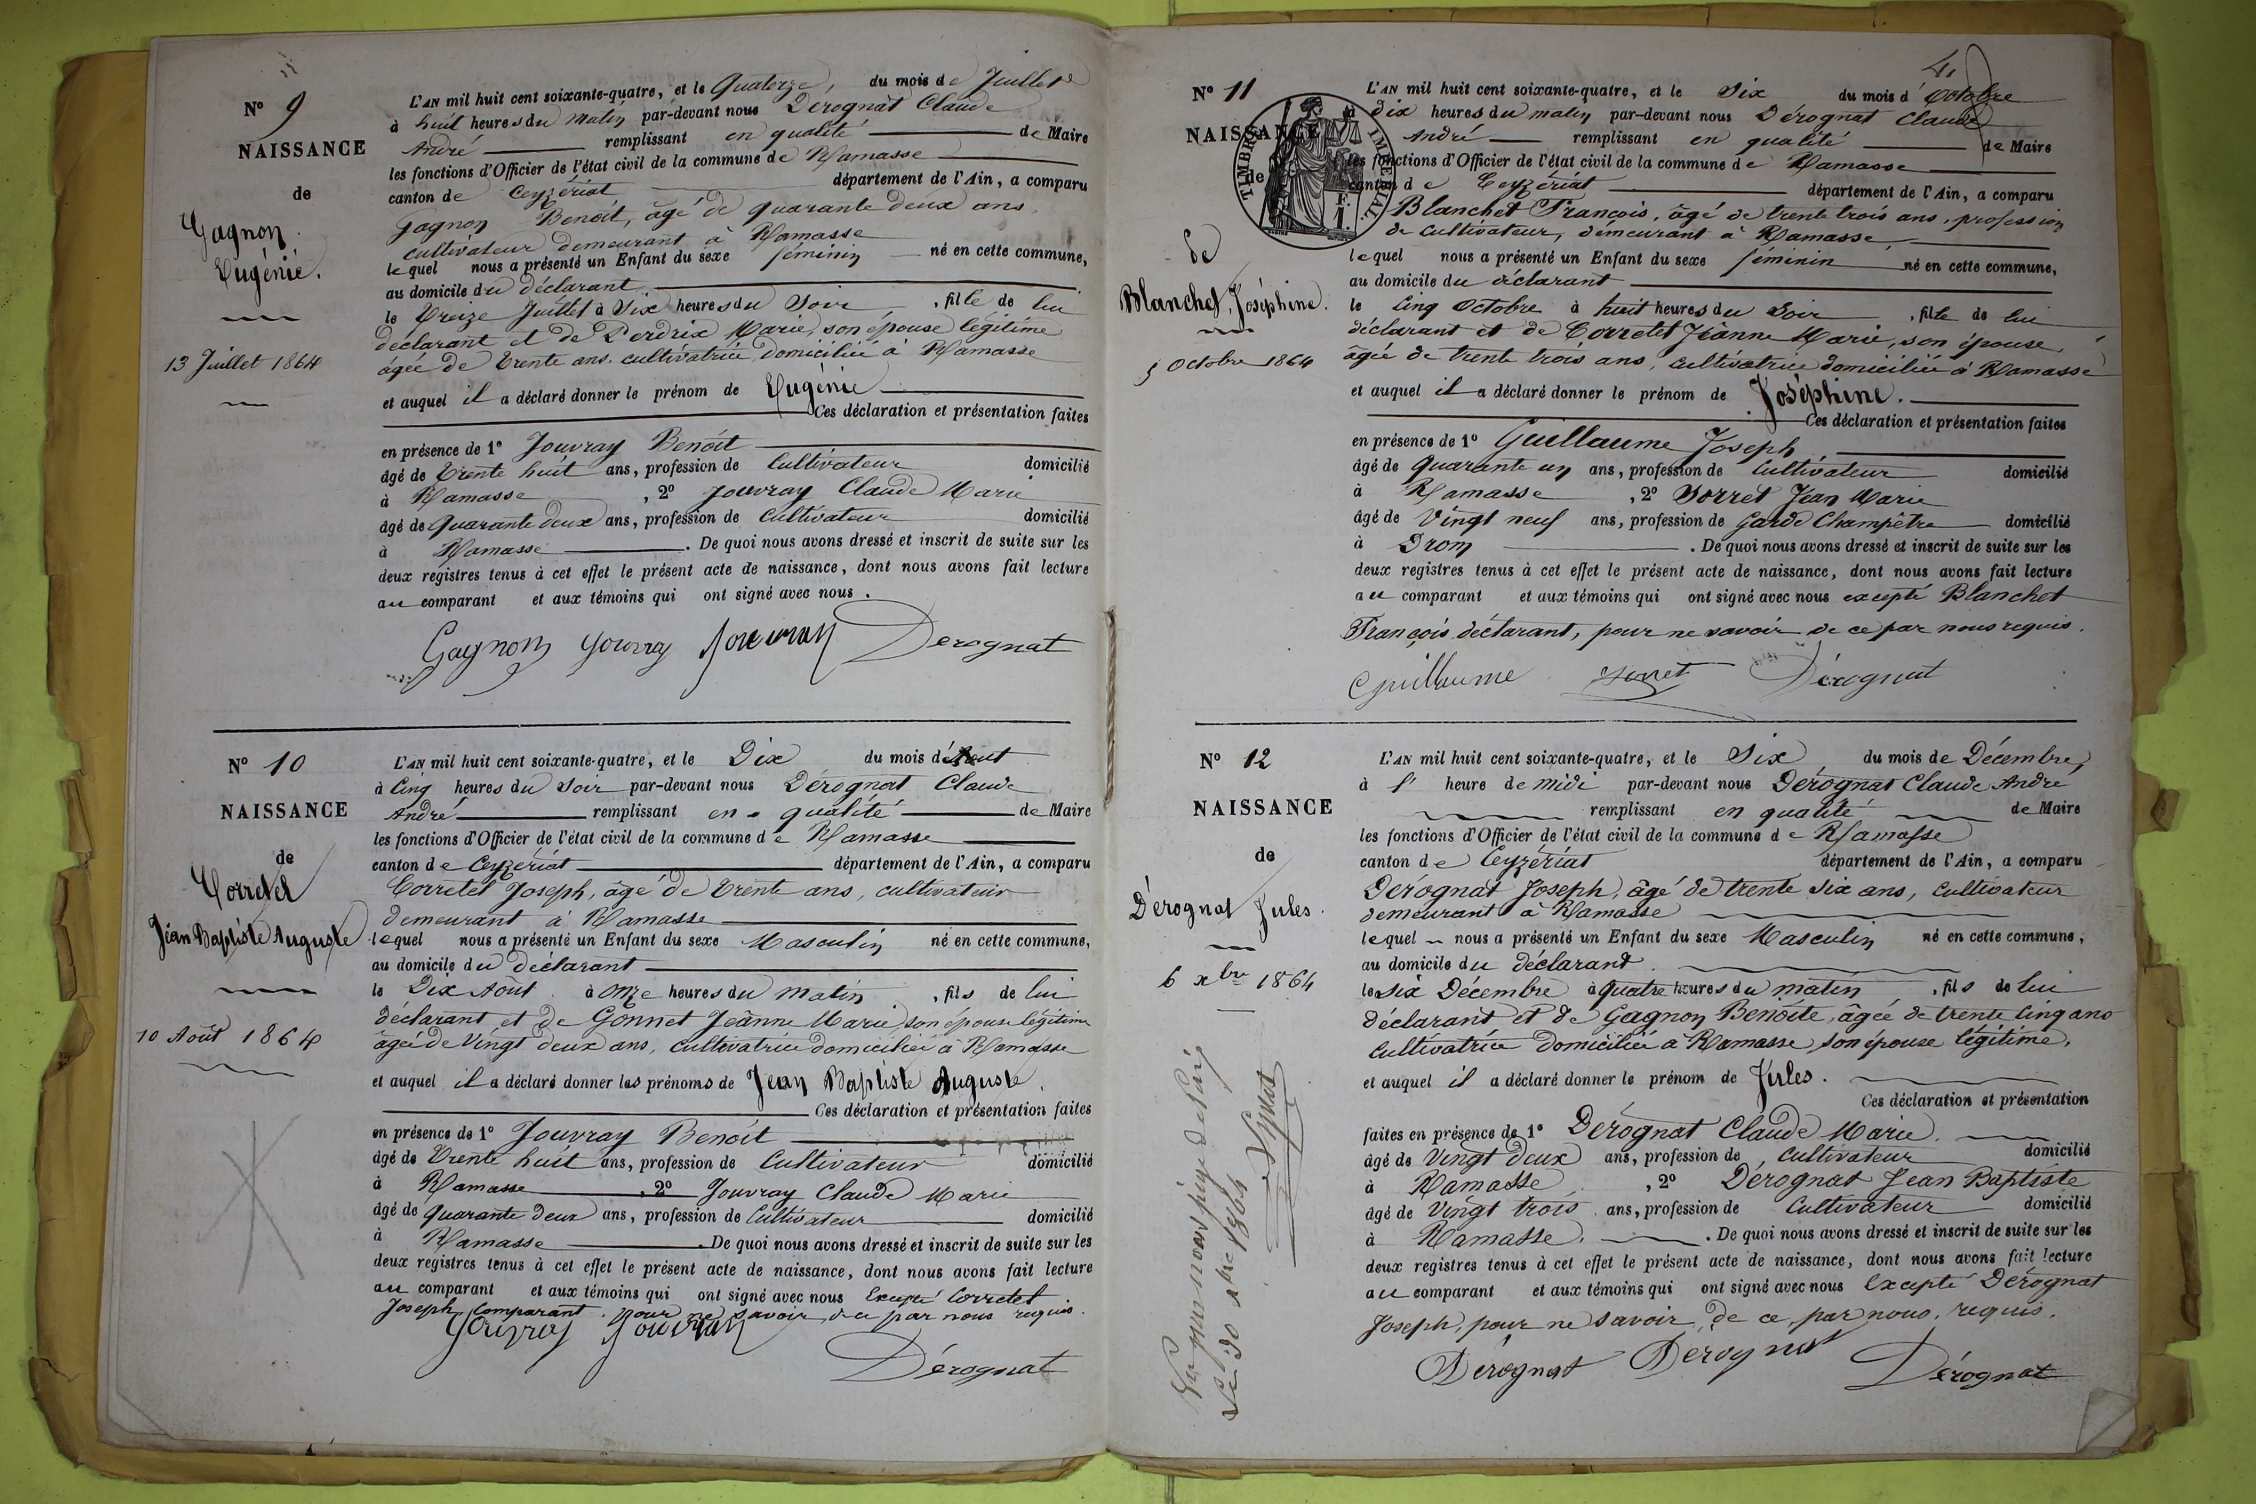 N° 9
NAISSANCE
de
Gagnon
Eugénie.
13 Juillet 1864
L'AN mil huit cent soixante-quatre, et le Quatorze, du mois de Juillet
à huit heures du matin par-devant nous Dérognat Claude
André remplissant en qualité de Maire
les fonctions d'Officier de l'état civil de la commune de Ramasse
canton de Ceyzériat département de l'Ain, a comparu
Gagnon Benoît, âgé de quarante deux ans,
cultivateur demeurant à Ramasse
lequel nous a présenté un Enfant du sexe féminin né en cette commune,
au domicile du déclarant
le treize Juillet à Six heures du Soir, fille de lui
déclarant et de Perdrix Marie, son épouse légitime
âgée de trente ans, cultivatrice domiciliée à Ramasse
et auquel il a déclaré donner le prénom de Eugénie
Ces déclaration et présentation faites
en présence de 1° Jouvray Benoît
âgé de trente huit ans, profession de Cultivateur domicilié
à Ramasse, 2° Jouvray Claude Marie
âgé de quarante deux ans, profession de Cultivateur domicilié
à Ramasse. De quoi nous avons dressé et inscrit de suite sur les
deux registres tenus à cet effet le présent acte de naissance, dont nous avons fait lecture
au comparant et aux témoins qui ont signé avec nous.
Gagnon Jouvray Jouvray Derognat
N° 10
NAISSANCE
de
Corretel
Jean Baptiste Auguste
10 Août 1864
L'AN mil huit cent soixante-quatre, et le Dix du mois d'Aout
à Cinq heures du Soir par-devant nous Dérognat Claude
André remplissant en qualité de Maire
les fonctions d'Officier de l'état civil de la commune de Ramasse
canton de Ceyzériat département de l'Ain, a comparu
Corretel Joseph, âgé de trente ans, cultivateur
demeurant à Ramasse
lequel nous a présenté un Enfant du sexe Masculin né en cette commune,
au domicile du déclarant
le Dix Août à onze heures du matin, fils de lui
déclarant et de Gonnet Jeanne Marie, son épouse légitime
âgée de Vingt deux ans, cultivatrice domiciliée à Ramasse
et auquel il a déclaré donner les prénoms de Jean Baptiste Auguste.
Ces déclaration et présentation faites
en présence de 1° Jouvray Benoît
âgé de trente huit ans, profession de Cultivateur domicilié
à Ramasse, 2° Jouvray Claude Marie
âgé de quarante deux ans, profession de Cultivateur domicilié
à Ramasse. De quoi nous avons dressé et inscrit de suite sur les
deux registres tenus à cet effet le présent acte de naissance, dont nous avons fait lecture
au comparant et aux témoins qui ont signé avec nous Excepté Corretel
Joseph, Comparant, pour ne savoir, de ce par nous requis.
Jouvray Jouvray
Dérognat
4
TIMBRE IMPÉRIAL
N° 11
NAISSANCE
de
de
Blanchet, Joséphine.
5 Octobre 1864
L'AN mil huit cent soixante-quatre, et le Six du mois d'Octobre
à dix heures du matin par-devant nous Dérognat Claude
André remplissant en qualité de Maire
les fonctions d'Officier de l'état civil de la commune de Ramasse
canton de Ceyzériat département de l'Ain, a comparu
Blanchet François, âgé de trente trois ans, profession
de cultivateur, demeurant à Ramasse,
lequel nous a présenté un Enfant du sexe féminin né en cette commune,
au domicile du déclarant
le cinq Octobre à huit heures du Soir, fille de lui
déclarant et de Corretet Jeanne Marie, son épouse,
âgée de trente trois ans, cultivatrice domiciliée à Ramasse
et auquel il a déclaré donner le prénom de Joséphine.
Ces déclaration et présentation faites
en présence de 1° Guillaume Joseph
âgé de quarante un ans, profession de Cultivateur domicilié
à Ramasse, 2° Sorret Jean Marie
âgé de Vingt neuf ans, profession de Garde Champêtre domicilié
à Drom. De quoi nous avons dressé et inscrit de suite sur les
deux registres tenus à cet effet le présent acte de naissance, dont nous avons fait lecture
au comparant et aux témoins qui ont signé avec nous excepté Blanchet
François déclarant, pour ne savoir de ce par nous requis.
Guillaume Sorret Dérognat
N° 12
NAISSANCE
de
Dérognat Jules.
6 xbre 1864
L'AN mil huit cent soixante-quatre, et le Six du mois de Décembre,
à l' heure de midi par-devant nous Dérognat Claude André
remplissant en qualité de Maire
les fonctions d'Officier de l'état civil de la commune de Ramasse
canton de Ceyzériat département de l'Ain, a comparu
Dérognat Joseph, âgé de trente six ans, Cultivateur
demeurant à Ramasse
lequel nous a présenté un Enfant du sexe Masculin né en cette commune,
au domicile du déclarant.
le six Décembre à quatre heures du matin, fils de lui
déclarant et de Gagnon Benoîte, âgée de trente cinq ans
cultivatrice domiciliée à Ramasse, son épouse légitime,
et auquel il a déclaré donner le prénom de Jules.
Ces déclaration et présentation
faites en présence de 1° Dérognat Claude Marie.
âgé de Vingt deux ans, profession de cultivateur domicilié
à Ramasse, 2° Dérognat Jean Baptiste
âgé de Vingt trois ans, profession de Cultivateur domicilié
à Ramasse. De quoi nous avons dressé et inscrit de suite sur les
deux registres tenus à cet effet le présent acte de naissance, dont nous avons fait lecture
au comparant et aux témoins qui ont signé avec nous Excepté Dérognat
Joseph, pour ne savoir, de ce, par nous, requis.
Dérognat Derognat Dérognat
Vu par nous
Le 30 xbre 1864